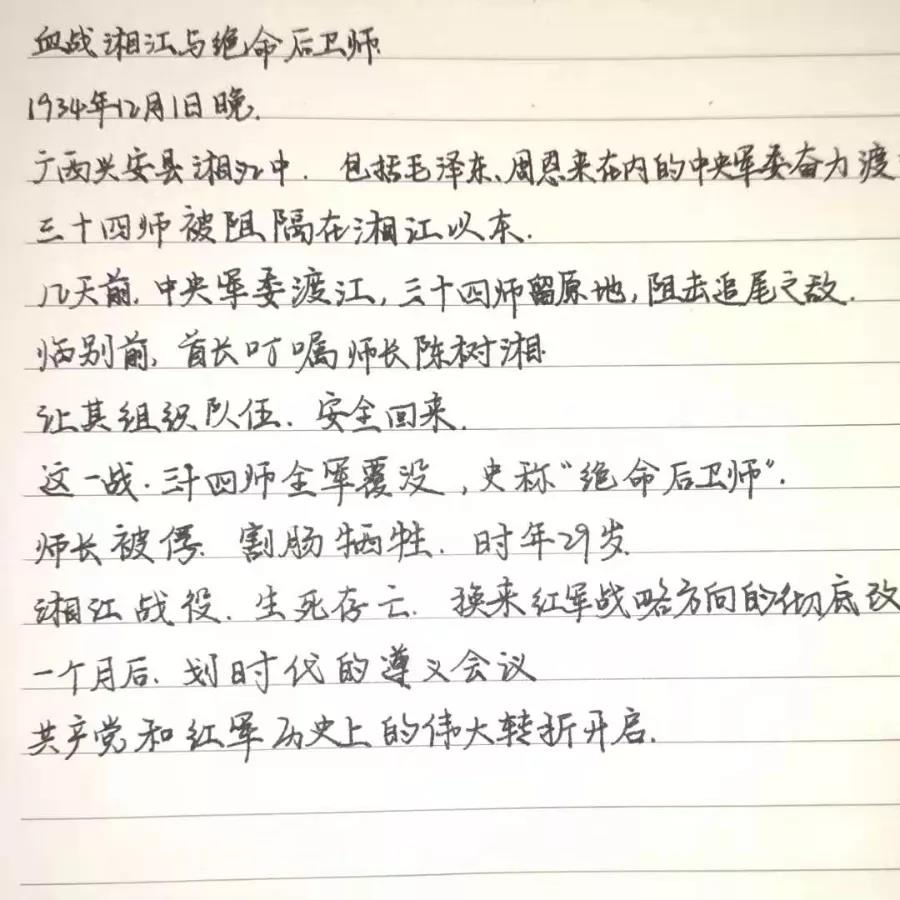 血战湘江与绝命后卫师
1934年12月1日晚.
广西兴安县湘江中. 包括毛泽东、周恩来在内的中央军委奋力渡
三十四师被阻隔在湘江以东.
几天前, 中央军委渡江, 三十四师留原地, 阻击追尾之敌.
临别前, 首长叮嘱师长陈树湘
让其组织队伍. 安全回来.
这一战. 三十四师全军覆没, 史称“绝命后卫师”.
师长被俘. 割肠牺牲. 时年29岁.
湘江战役. 生死存亡. 换来红军战略方向的彻底改
一个月后. 划时代的遵义会议
共产党和红军历史上的伟大转折开启.